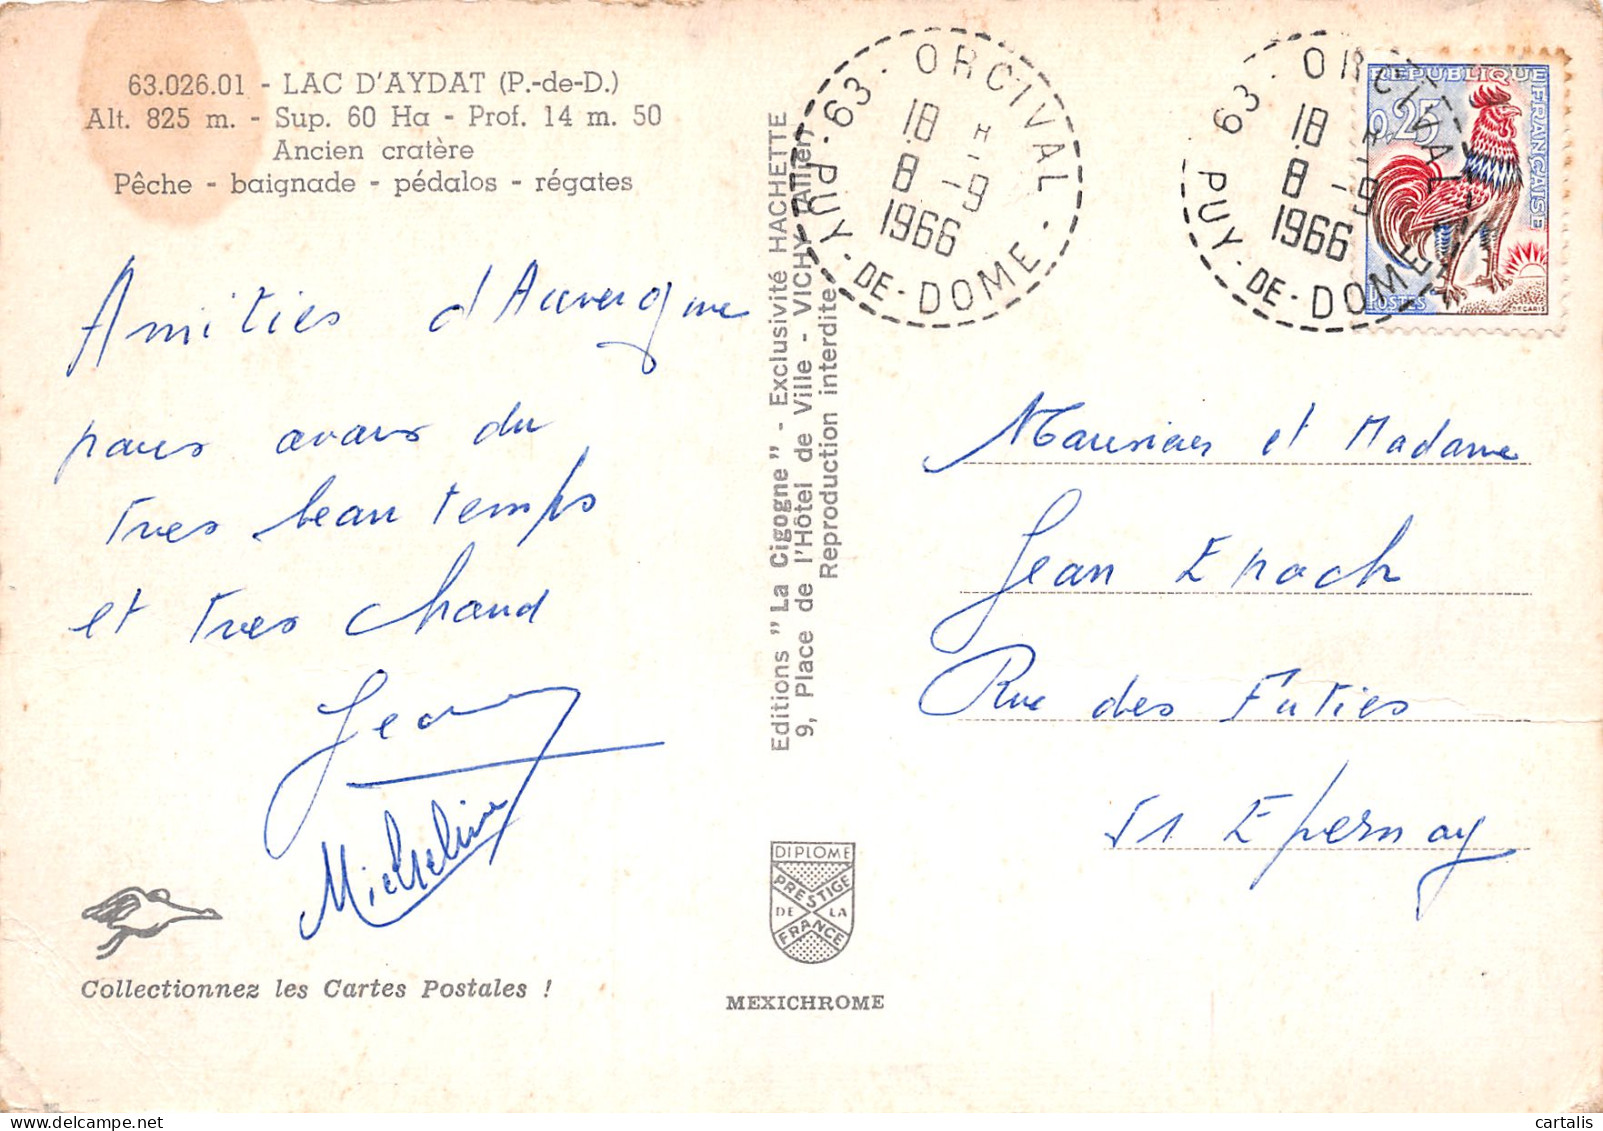 63.026.01 - LAC D'AYDAT (P.-de-D.)
Alt. 825 m. - Sup. 60 Ha - Prof. 14 m. 50
Ancien cratère
Pêche - baignade - pédalos - régates
Amitiés d'Auvergne
nous avons du
tres beau temps
et tres chaud
Jean
Micheline
Collectionnez les Cartes Postales !
Editions " La Cigogne " - Exclusivité HACHETTE
9, Place de l'Hôtel de Ville - VICHY (Allier)
Reproduction interdite
DIPLOME
PRESTIGE
DE LA
FRANCE
MEXICHROME
63 · ORCIVAL · PUY-DE-DOME ·
18 H
8 - 9
1966
63 · ORCIVAL · PUY-DE-DOME
18 H
8 - 9
1966
REPUBLIQUE FRANÇAISE
0,25
POSTES
DECARIS
Monsieur et Madame
Jean Enoch
Rue des Futies
51 Epernay
cartalis